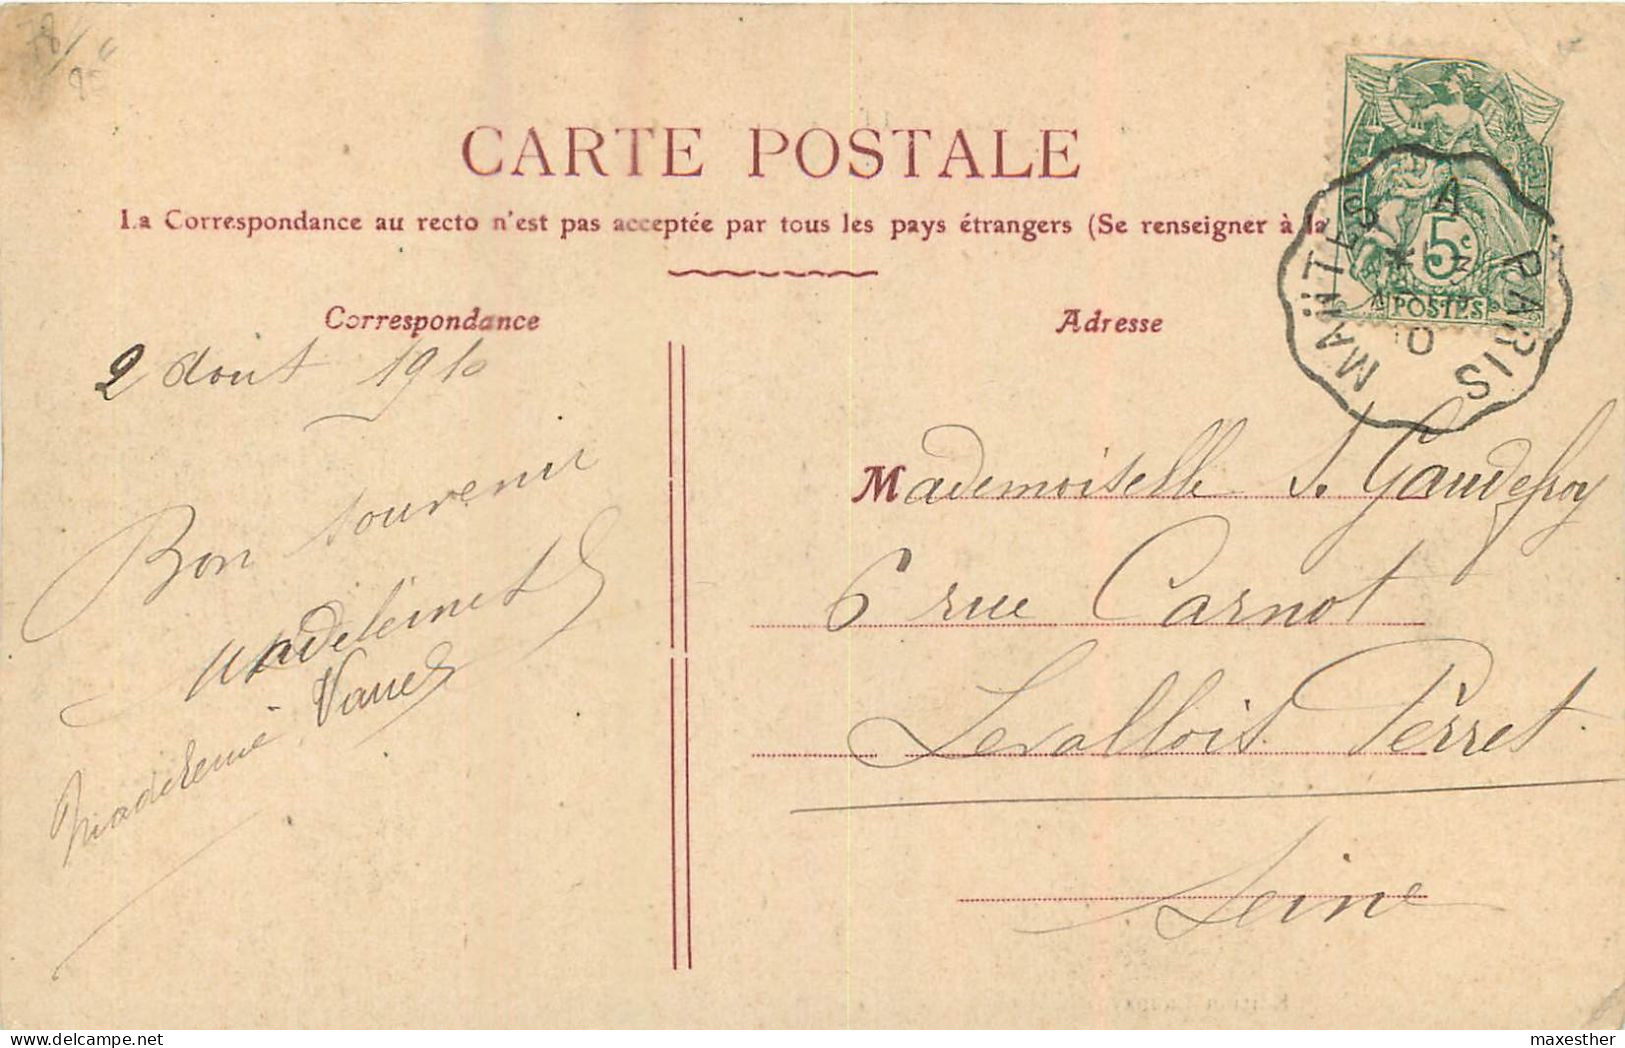 78/
CARTE POSTALE
La Correspondance au recto n'est pas acceptée par tous les pays étrangers (Se renseigner à la
Correspondance
2 Aout 1910
Bon souvenir
Madeleine
Madeleine
Adresse
Mademoiselle S. Gaudefroy
6 rue Carnot
Levallois Perret
Seine
MANTES A PARIS
5c
POSTES
maxesther